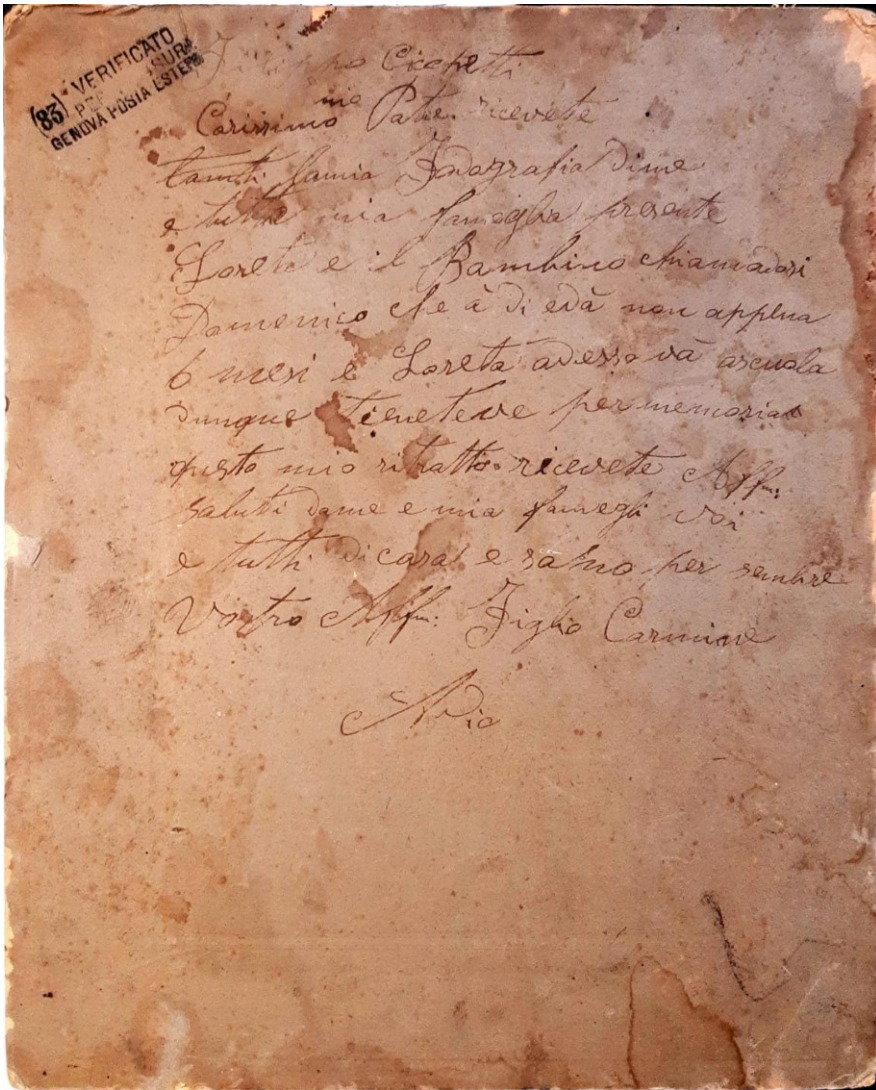 (83) VERIFICATO
PER CENSURA
GENOVA POSTA ESTERA
Filippo Cicchetti
mio
Carissimo Patre ricevete
tanti lamia Fodografia dime
e tutta mia fameglia presente
Loreta e il Bambino chiamadosi
Domenico che à di edà non appena
6 mesi e Loreta adesso và ascuola
dunque tieneteve per memoria
questo mio ritratto ricevete Affm:
saluti dame e mia famegli voi
e tutti di casa e sono per sembre
Vostro Affm: Figlio Carmine
Adio